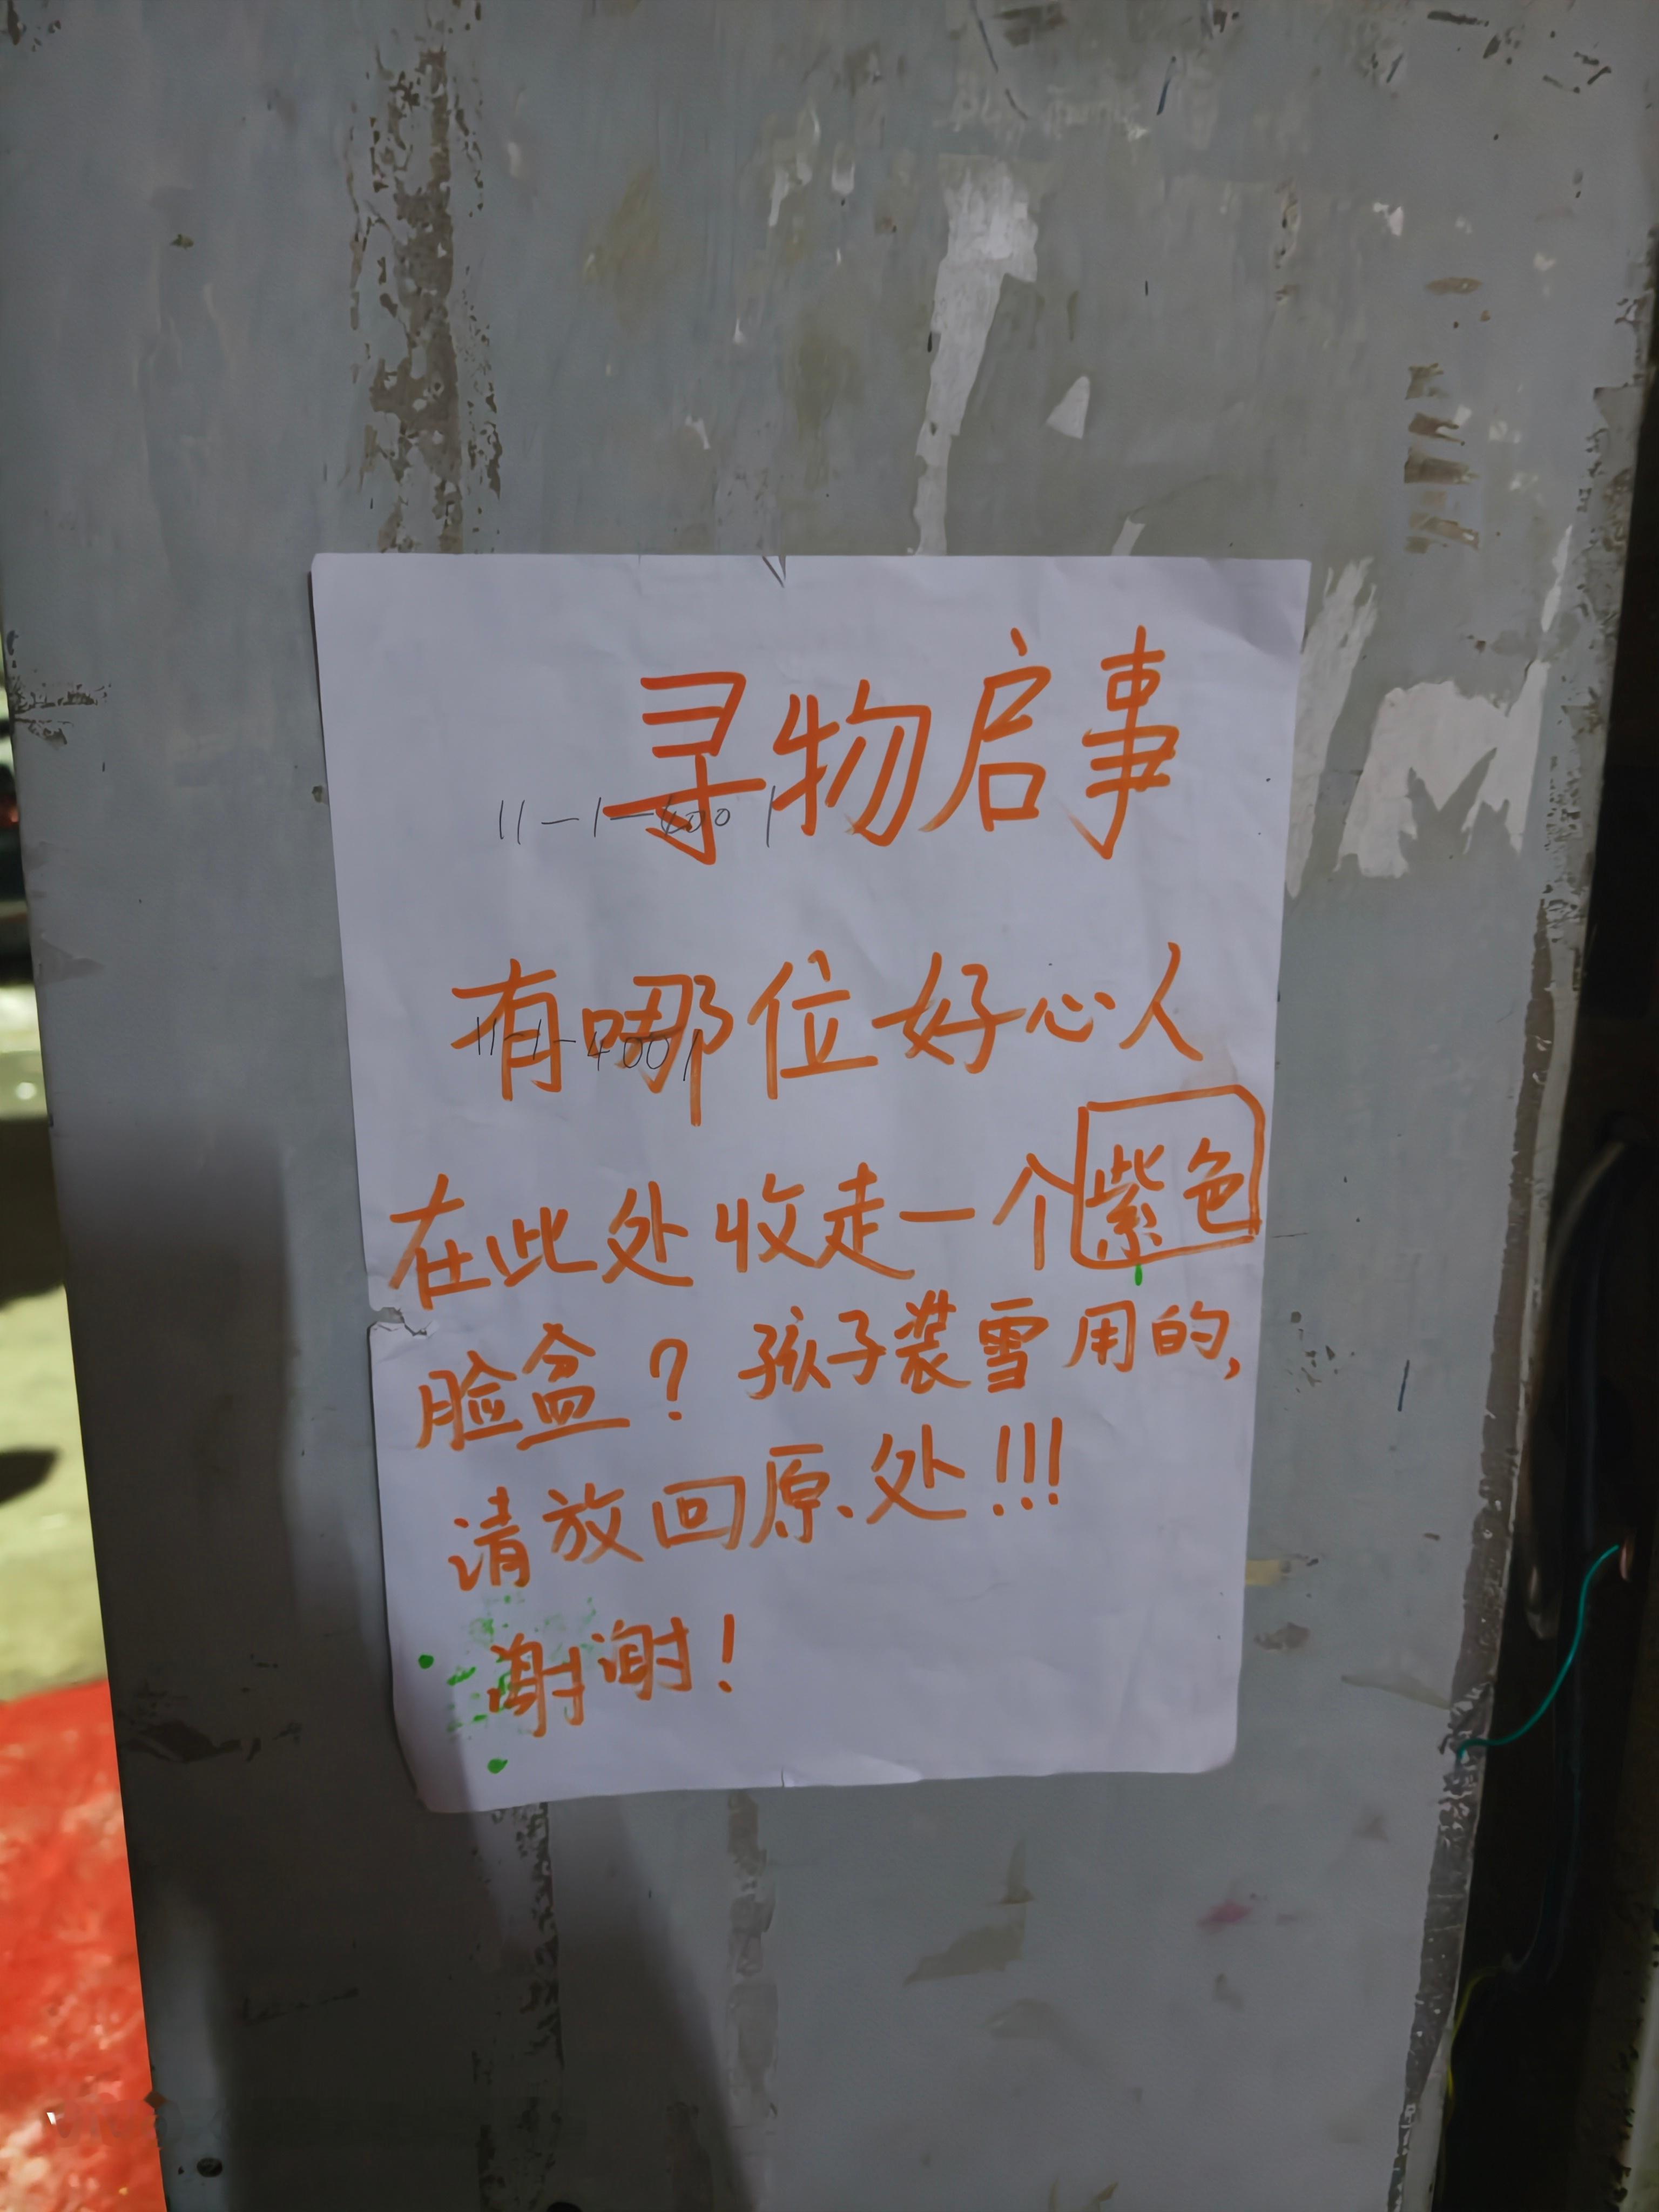 寻物启事
11-1-4001
有哪位好心人
11-1-4001
在此处收走一个紫色
脸盆？孩子装雪用的，
请放回原处!!!
谢谢！